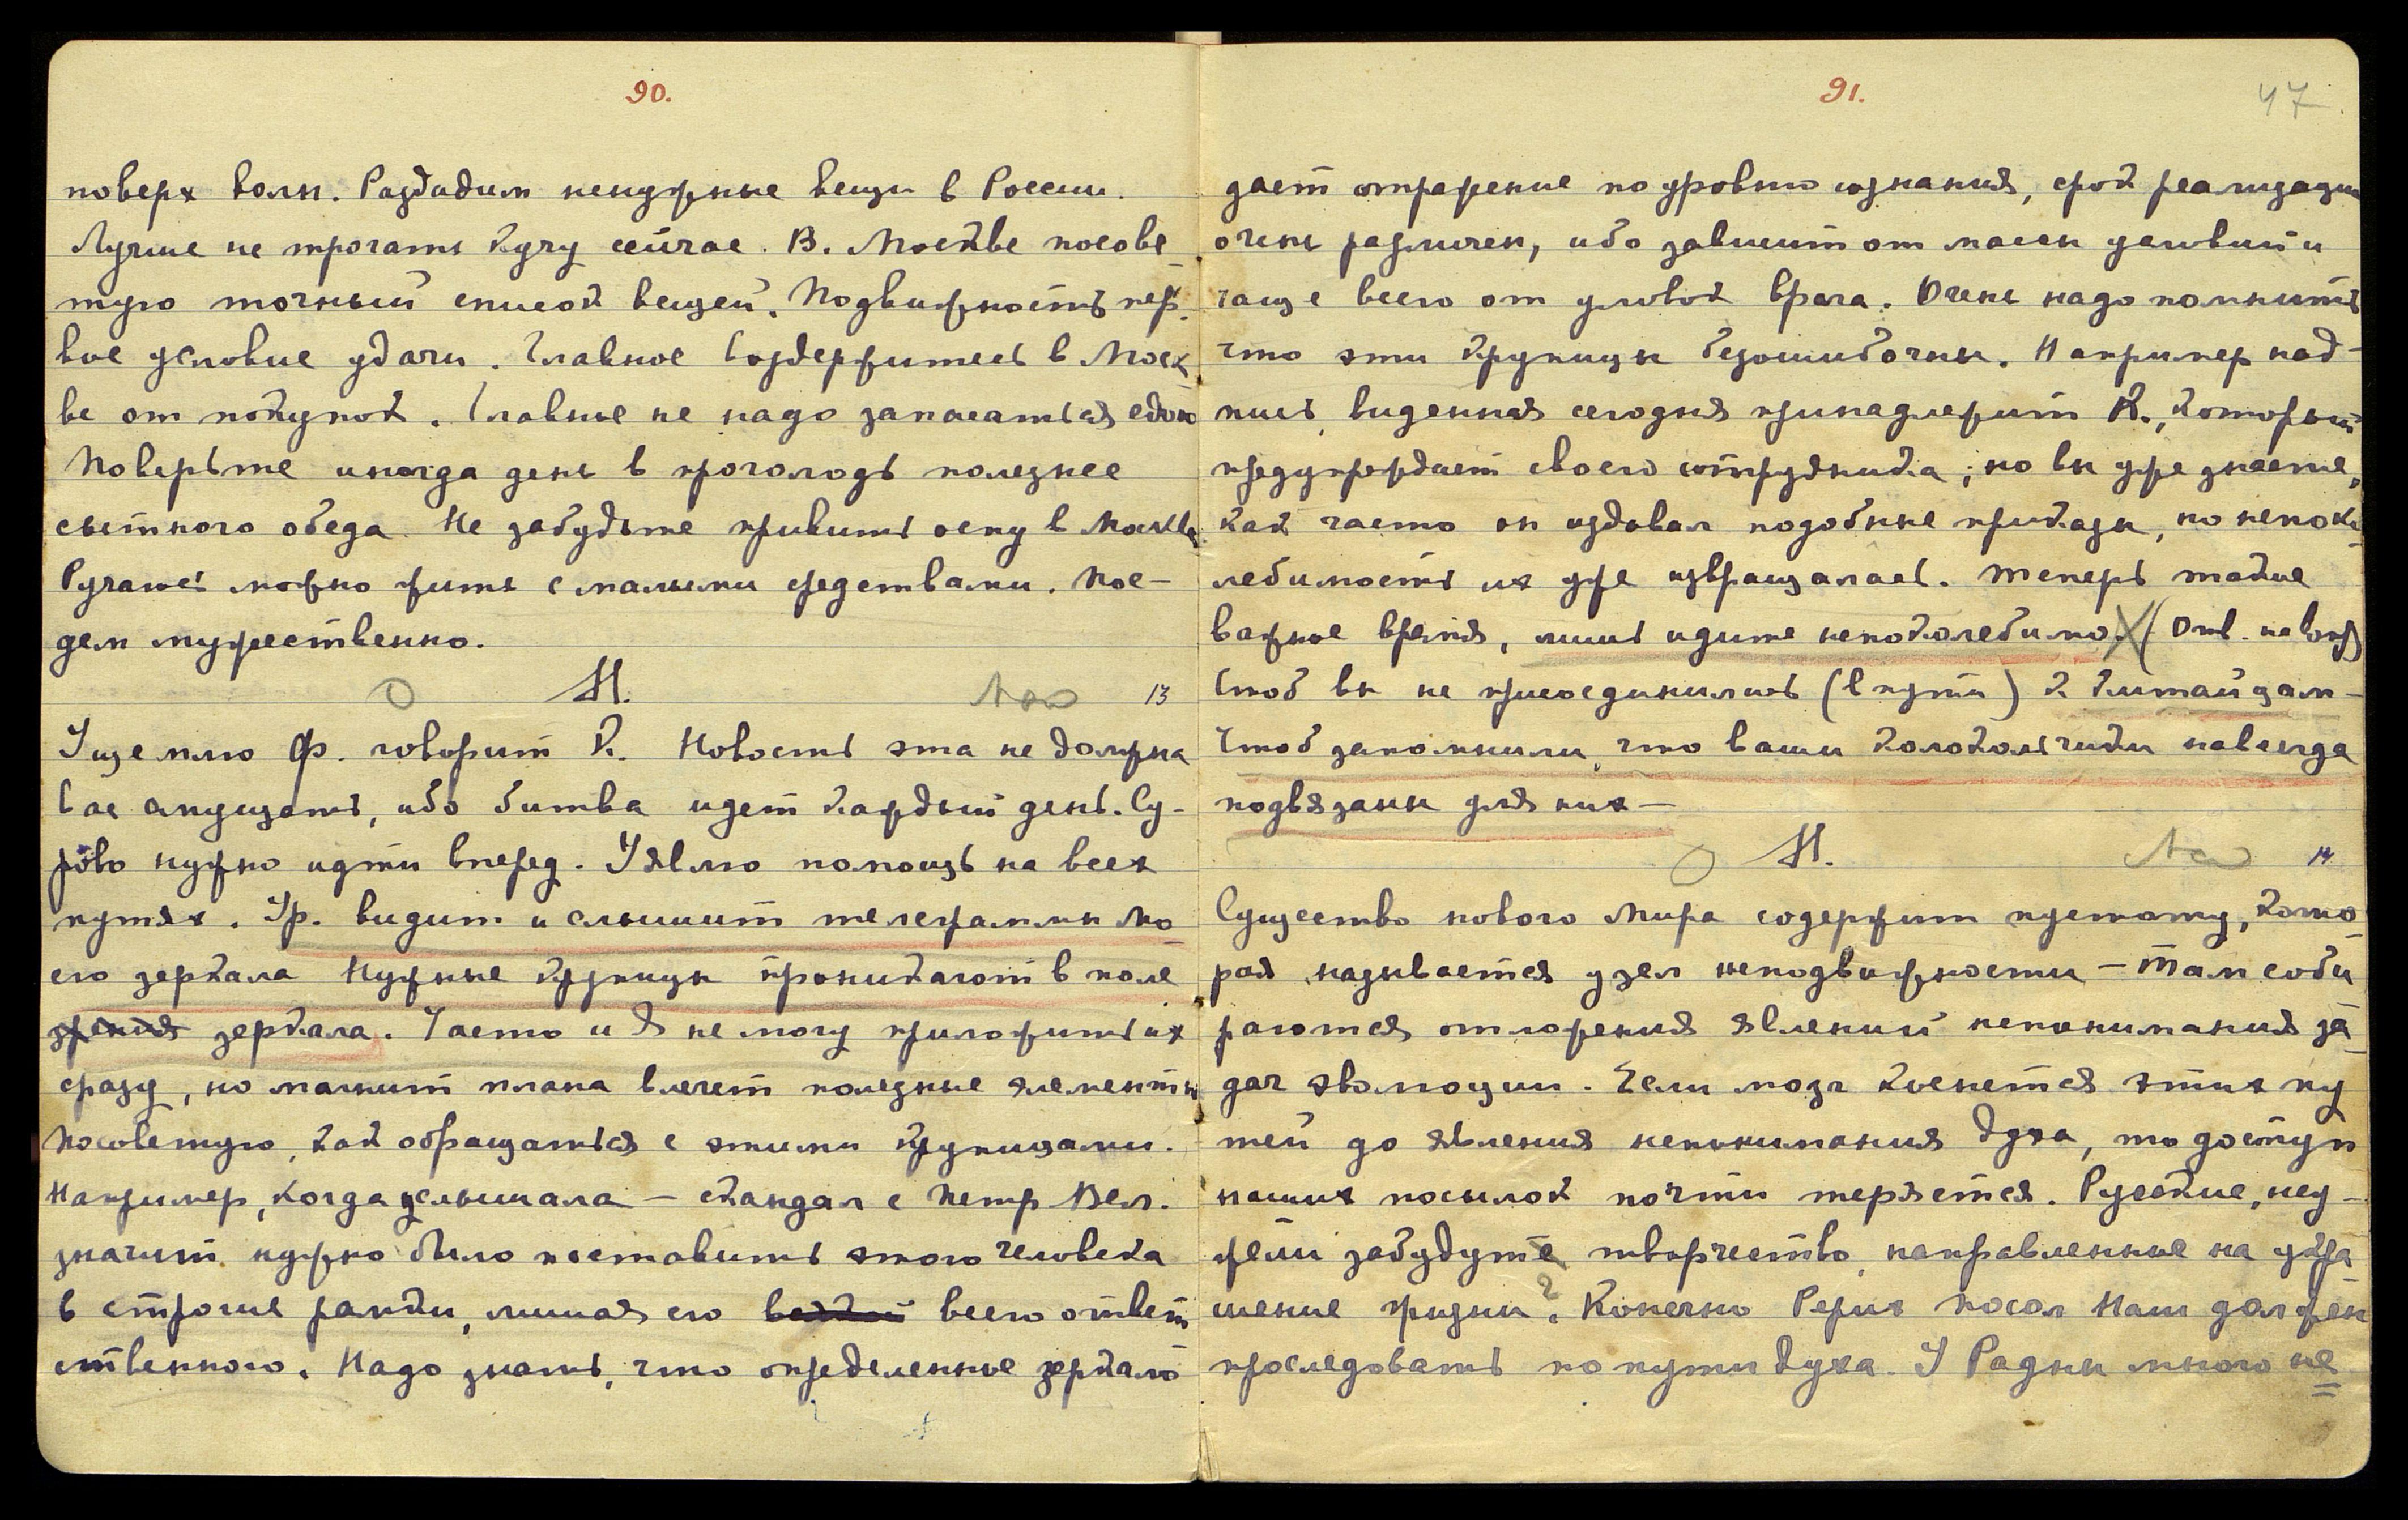 90.
поверх волн. Раздадим ненужные вещи в России.
Лучше не трогать кучу сейчас. В. Москве посове
тую точный список вещей. Подвижность пер
вое условие удачи. Главное воздержитесь в Моск
ве от покупок. Главное не надо запасаться едою
Поверьте иногда день в проголодь полезнее
сытного обеда Не забудьте привить оспу в Москве
Ручаюсь можно жить с малыми средствами. Пое-
дем мужественно.
М. 13
Ущемлю Ф. говорит К. Новость эта не должна
вас смущать, ибо битва идет каждый день. Су-
рово нужно идти вперед. Явлю помощь на всех
путях. Ур. видит и слышит телеграммы мо
его зеркала Нужные крупицы проникают в поле
зрения зеркала. Часто и я не могу приложить их
сразу, но магнит плана влечет полезные элементы
Посоветую, как обращаться с этими крупицами.
Например, когда услышала — скандал с Петр Вел.
значит нужно было поставить этого человека
в строгие рамки, лишая его всего ответ
ственного. Надо знать, что определенное зеркало
91.
47
дает отражение по уровню сознания, срок реализации
очень различен, ибо зависит от массы условий и
чаще всего от уловок врага. Очень надо помнить
что эти крупицы безошибочны. Например над-
пись, виденная сегодня принадлежит К., который
предупреждает своего сотрудника; но вы уже знаете,
как часто он издавал подобные приказы, но непоко
лебимость их уже извращалась. Теперь такое
важное время, лишь идите непоколебимо. (Отв. на вопр)
Чтоб вы не присоединились (в пути) к китайцам —
Чтоб запомнили, что ваши колокольчики навсегда
подвязаны для них —
М. 14
Существо нового Мира содержит пустоту, кото
рая называется узел неподвижности — Там соби
раются отложения явлений непонимания за
дач эволюции. Если мозг коснется этих пу
тей до явления непонимания духа, то доступ
наших посылок почти теряется. Русские, неу-
жели забудуте творчество, направленное на укра
шение жизни? Конечно Рерих посол Наш должен
проследовать по пути духа. У Радны много не